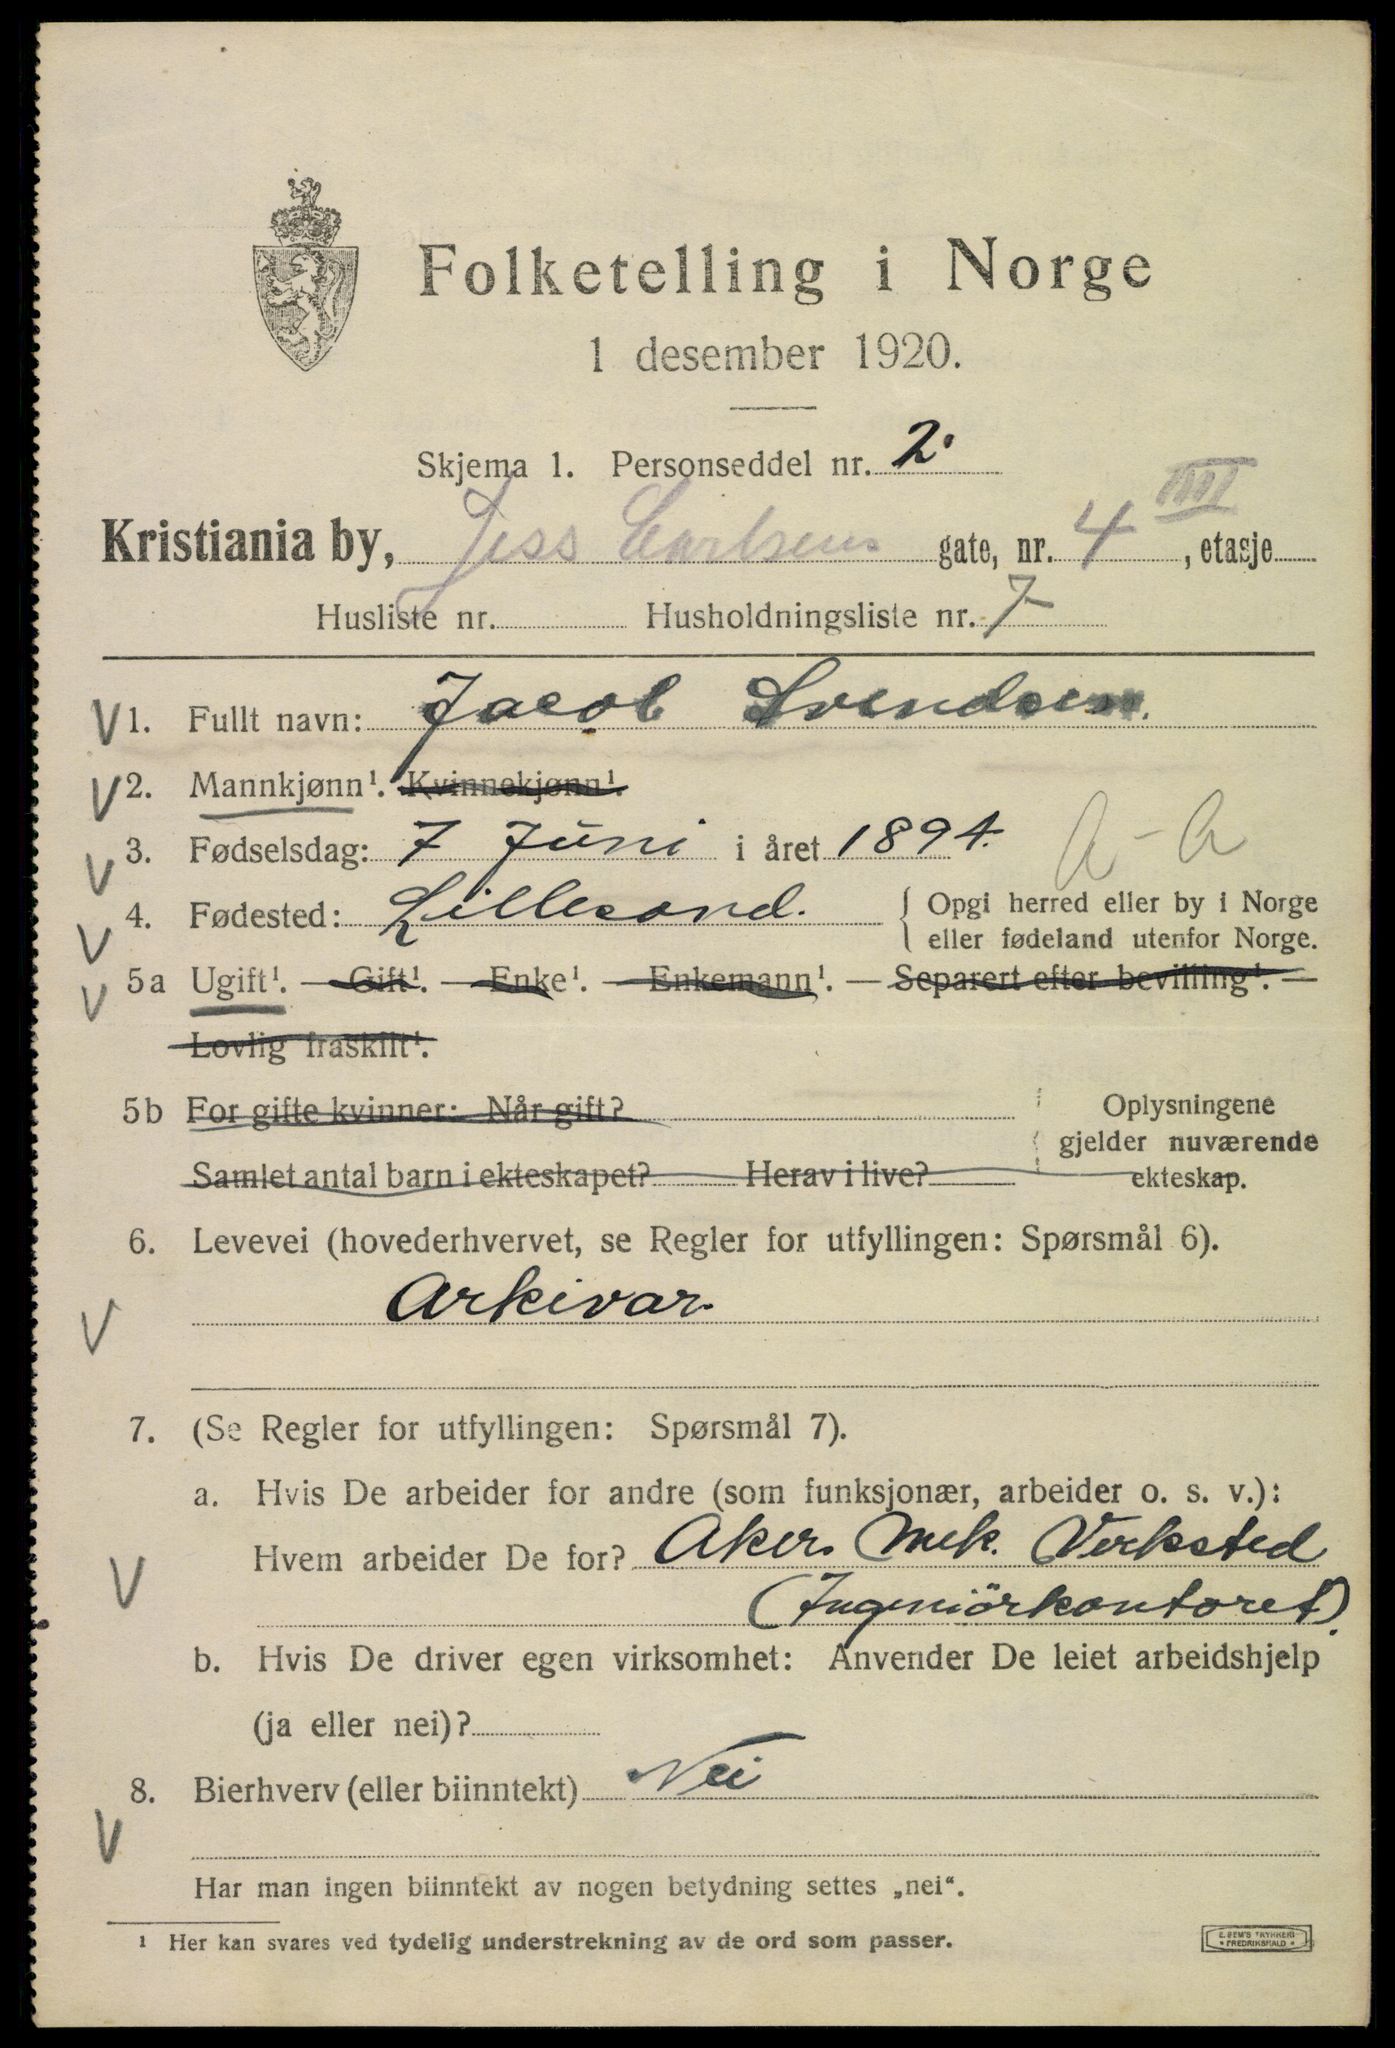 Folketelling i Norge
1 desember 1920.
Skjema 1. Personseddel nr. 2
Kristiania by, Jess Carlsens gate, nr. 4 III, etasje
Husliste nr. Husholdningsliste nr. 7
V 1. Fullt navn: Jacob Svendsen.
V 2. Mannkjønn¹. Kvinnekjønn¹.
V 3. Fødselsdag: 7 Juni i året 1894.
V 4. Fødested: Lillesand. Opgi herred eller by i Norge
eller fødeland utenfor Norge.
V 5a Ugift¹. — Gift¹. — Enke¹. — Enkemann¹. — Separert efter bevilling¹. —
Lovlig fraskilt¹.
5b For gifte kvinner: Når gift? Oplysningene
gjelder nuværende
Samlet antal barn i ekteskapet? Herav i live? ekteskap.
6. Levevei (hovederhvervet, se Regler for utfyllingen: Spørsmål 6).
V Arkivar.
7. (Se Regler for utfyllingen: Spørsmål 7).
a. Hvis De arbeider for andre (som funksjonær, arbeider o. s. v.):
V Hvem arbeider De for? Akers Mek. Verksted
(Ingeniörkontoret).
b. Hvis De driver egen virksomhet: Anvender De leiet arbeidshjelp
(ja eller nei)?
8. Bierhverv (eller biinntekt) Nei
V
Har man ingen biinntekt av nogen betydning settes „nei“.
¹ Her kan svares ved tydelig understrekning av de ord som passer.
E. SEM'S TRYKKERI
FREDRIKSHALD